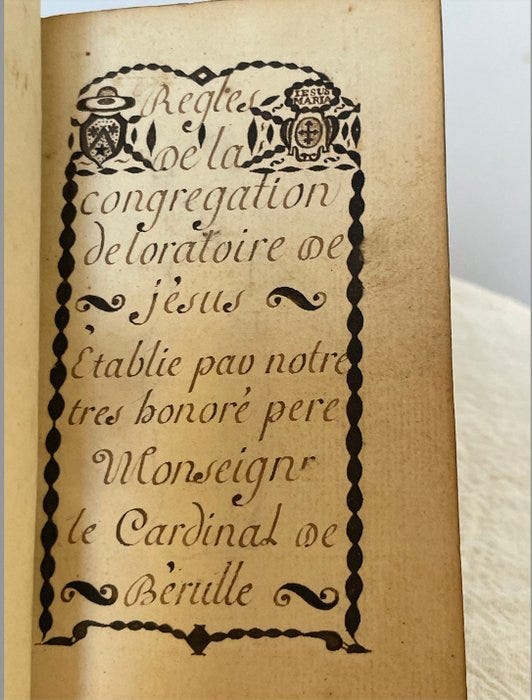 JESUS
MARIA
Regles
de la
congregation
de loratoire de
jésus
Établie par notre
tres honoré pere
Monseignr
le Cardinal de
Bérulle